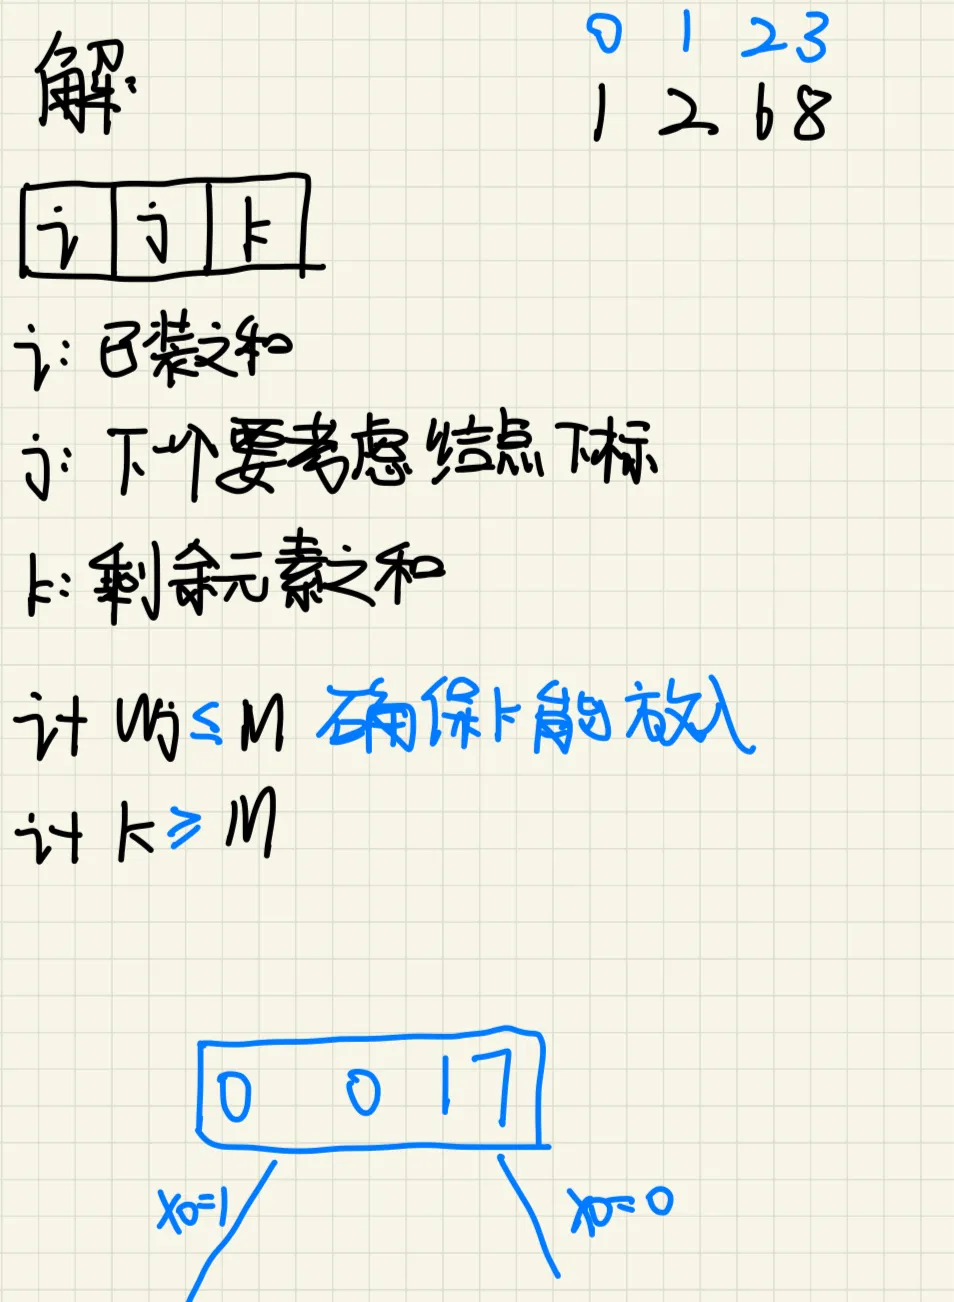 解:
0 1 2 3
1 2 6 8
i j k
i: 已装之和
j: 下个要考虑结点下标
k: 剩余元素之和
i+Wj≤M 确保k能放入
i+k≥M
0 0 17
x0=1
x0=0